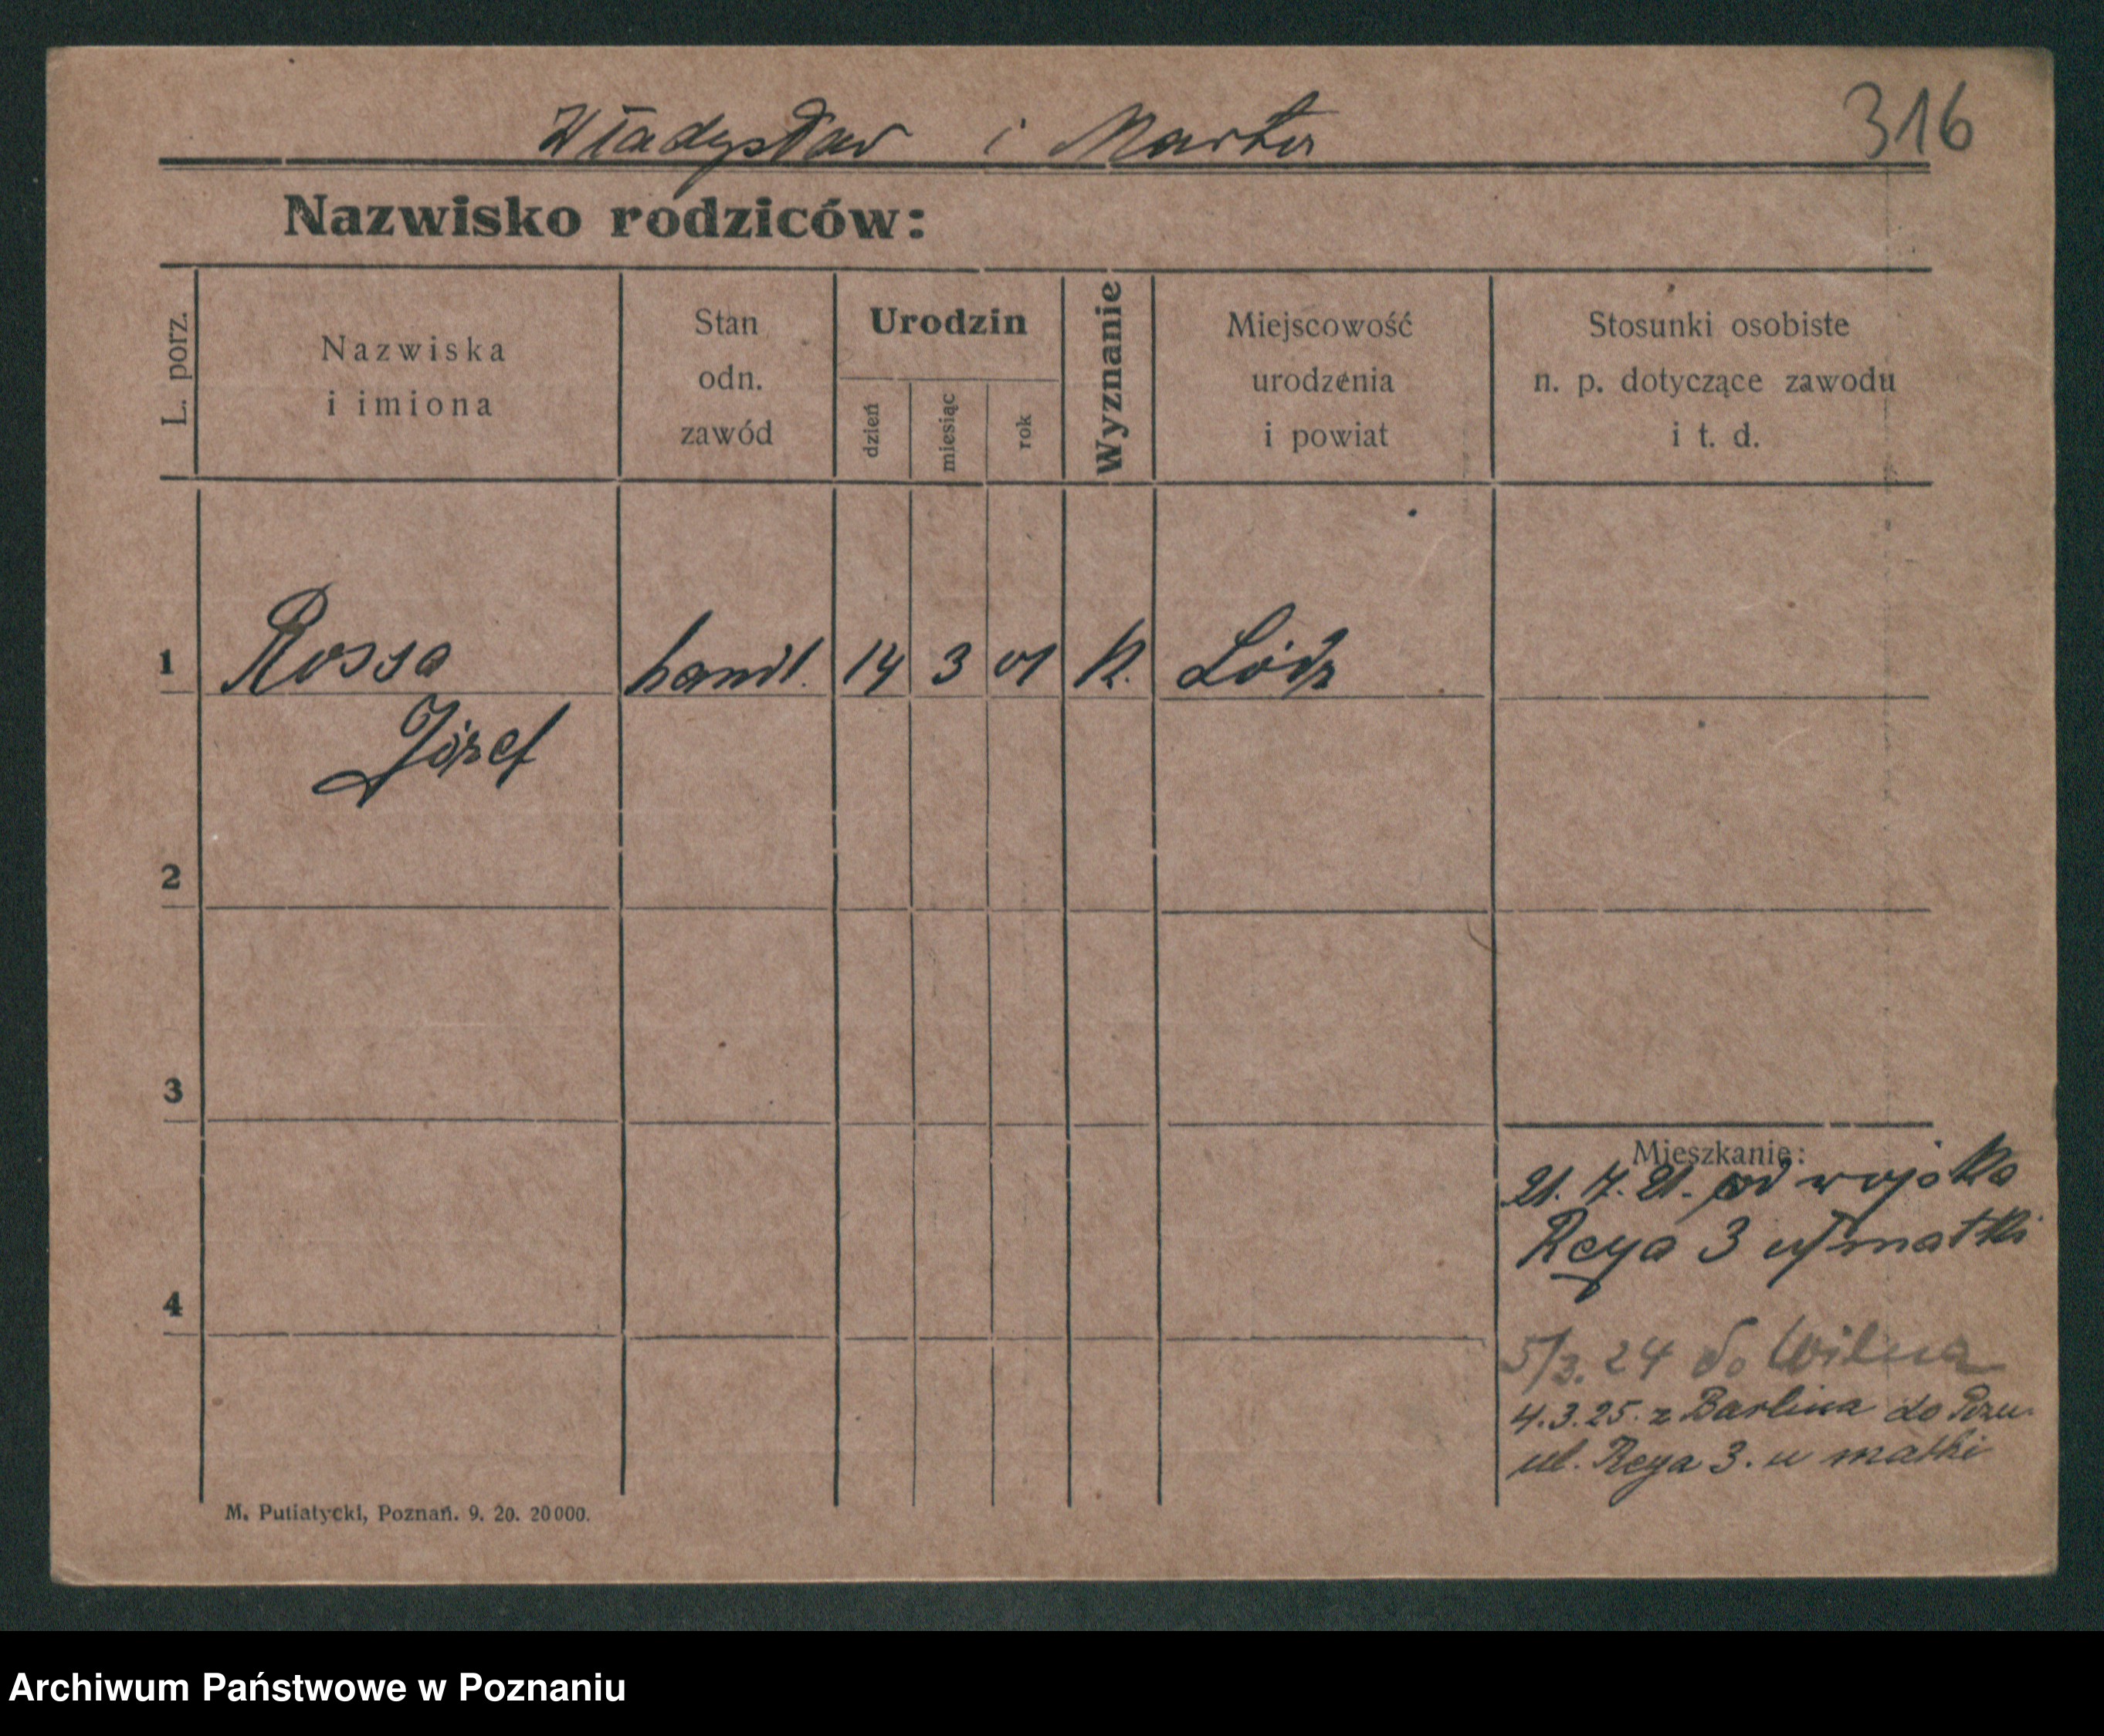 316
Władysław i Marta
Nazwisko rodziców:
L. porz.
Nazwiska
i imiona
Stan
odn.
zawód
Urodzin
dzień
miesiąc
rok
Wyznanie
Miejscowość
urodzenia
i powiat
Stosunki osobiste
n. p. dotyczące zawodu
i t. d.
1 Rossa handl. 14 3 01 K. Łódź
Józef
2
3
4
Mieszkanie:
21. 7. 21. od wojska
Reya 3 u matki
5/3. 24 do Wilna
4.3.25. z Barlina do Pozn.
ul. Reya 3. u matki
M. Putiatycki, Poznań. 9. 20. 20000.
Archiwum Państwowe w Poznaniu